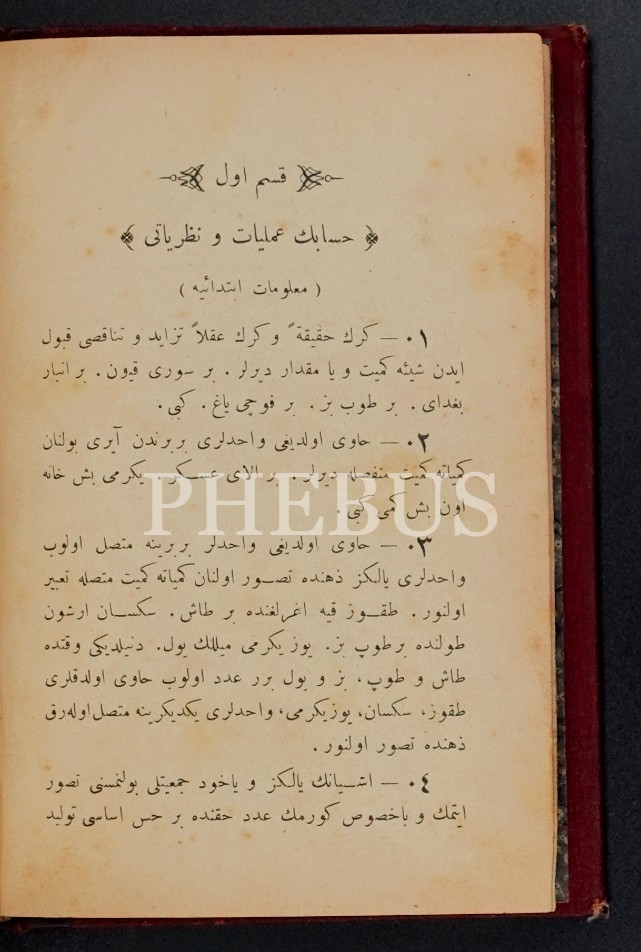 قسم اول
﴿ حسابك عمليات و نظرياتى ﴾
( معلومات ابتدائيه )
٠١ — كرك حقيقةً و كرك عقلاً تزايد و تناقصى قبول
ايدن شيئه كميت و يا مقدار ديرلر . بر سورى قيون . بر انبار
بغداى . بر طوب بز . بر فوچى ياغ . كبى .
٠٢ — حاوى اولديغى واحدلرى بربرندن آيرى بولنان
كمياته كميت منفصله ديرلر . بر الاى عسـكر . يكرمى بش خانه
اون بش كمى كبى .
PHEBUS
٠٣ — حاوى اولديغى واحدلر بربرينه متصل اولوب
واحدلرى يالكز ذهنده تصـور اولنان كمياته كميت متصله تعبير
اولنور . طقـوز قيه اغرلغنده بر طاش . سكسـان ارشون
طولنده بر طوپ بز . يوز يكرمى ميللك يول . دنيلديكى وقتده
طاش و طوپ ، بز و يول برر عدد اولوب حاوى اولدقلرى
طقوز ، سكسان ، يوزيكرمى ، واحدلرى يكديكرينه متصل اوله رق
ذهنده تصور اولنور .
٠٤ — اشـيانك يالكز و ياخود جمعيتلى بولنمسنى تصور
ايتمك و باخصوص كورمك عدد حقنده بر حس اساسى توليد